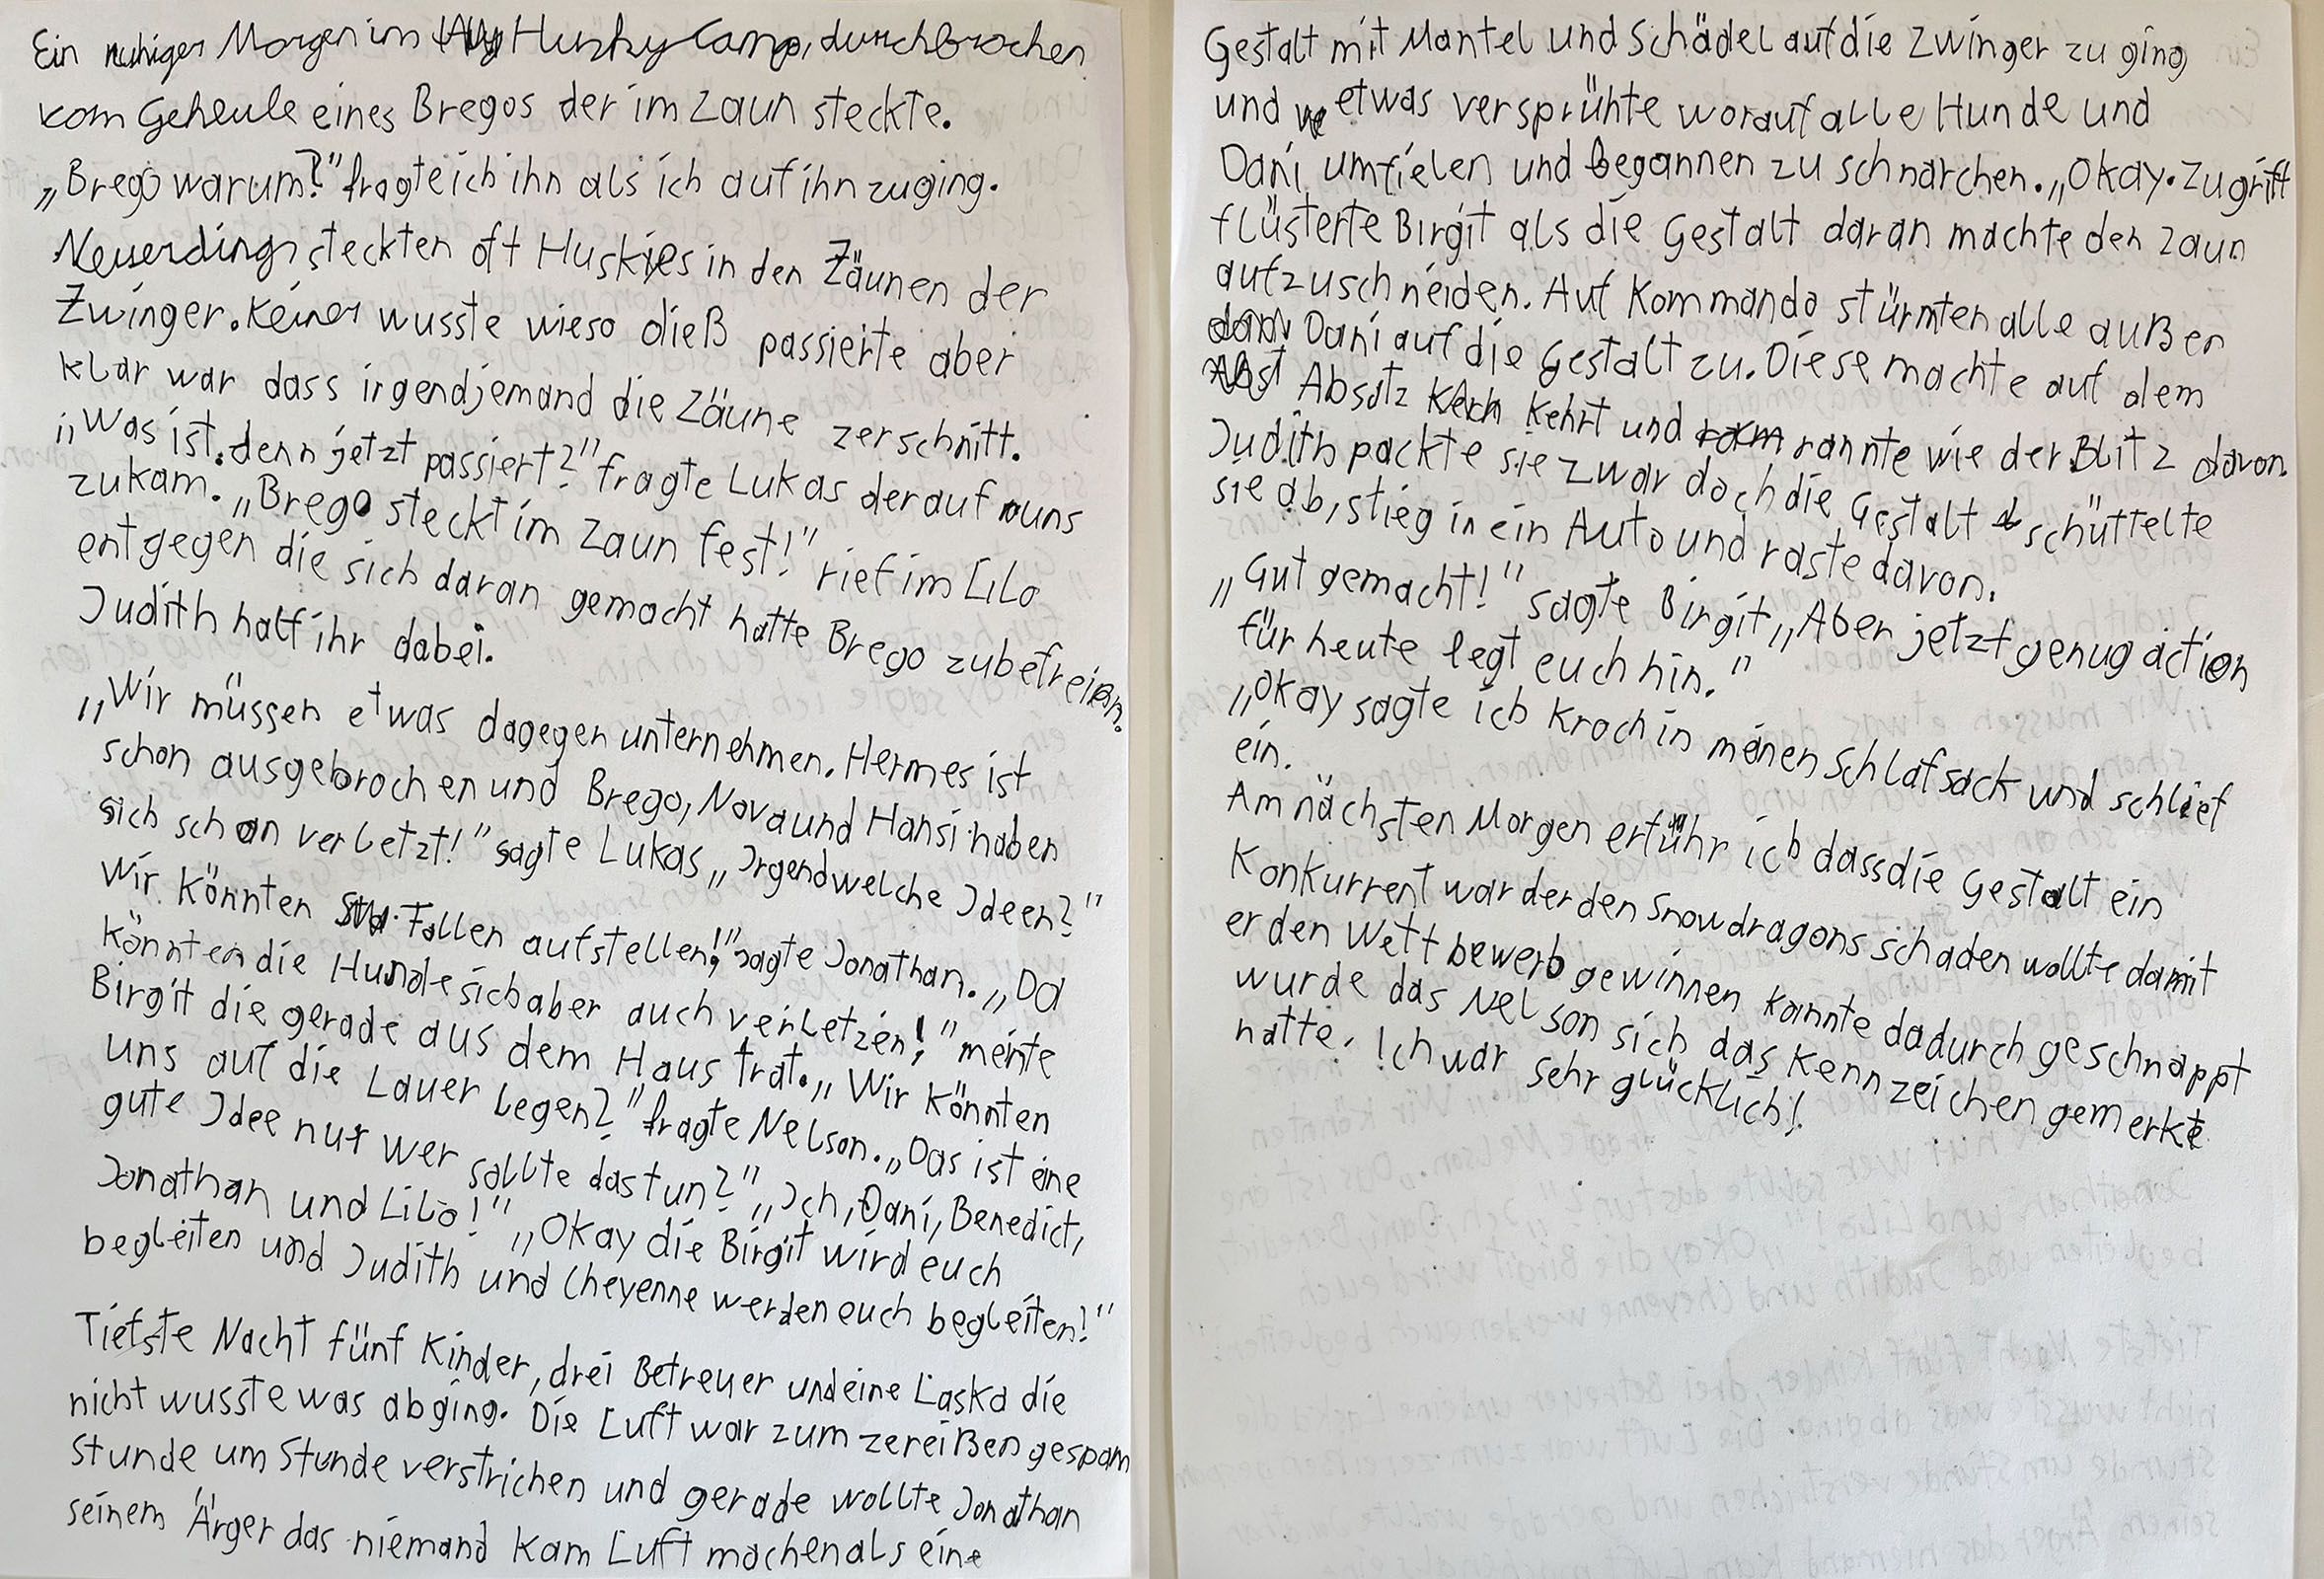 Ein ruhiger Morgen im Husky Camp, durchbrochen
vom Geheule eines Bregos der im Zaun steckte.
„Brego warum?" fragte ich ihn als ich auf ihn zuging.
Neuerdings steckten oft Huskies in den Zäunen der
Zwinger. Keiner wusste wieso dieß passierte aber
klar war dass irgendjemand die Zäune zerschnitt.
„Was ist denn jetzt passiert?" fragte Lukas der auf uns
zukam. „Brego steckt im Zaun fest!" rief im Lilo
entgegen die sich daran gemacht hatte Brego zubefreien.
Judith half ihr dabei.
„Wir müssen etwas dagegen unternehmen. Hermes ist
schon ausgebrochen und Brego, Nova und Hansi haben
sich schon verletzt!" sagte Lukas „Irgendwelche Ideen?"
Wir könnten Fallen aufstellen!" sagte Jonathan. „Da
könnten die Hunde sich aber auch verletzen!" meinte
Birgit die gerade aus dem Haus trat. „Wir könnten
uns auf die Lauer legen?" fragte Nelson. „Das ist eine
gute Idee nur wer sollte das tun?" „Ich, Dani, Benedict,
Jonathan und Lilo!" „Okay die Birgit wird euch
begleiten und Judith und Cheyenne werden euch begleiten!"
Tiefste Nacht fünf Kinder, drei Betreuer und eine Laska die
nicht wusste was abging. Die Luft war zum zereißen gespann
Stunde um Stunde verstrichen und gerade wollte Jonathan
seinem Ärger das niemand kam Luft machen als eine
Gestalt mit Mantel und Schädel auf die Zwinger zu ging
und etwas versprühte worauf alle Hunde und
Dani umfielen und begannen zu schnarchen. „Okay. Zugriff
flüsterte Birgit als die Gestalt daran machte den Zaun
aufzuschneiden. Auf Kommando stürmten alle außer
Dani auf die Gestalt zu. Diese machte auf dem
Absatz kehrt und rannte wie der Blitz davon.
Judith packte sie zwar doch die Gestalt schüttelte
sie ab, stieg in ein Auto und raste davon.
„Gut gemacht!" sagte Birgit „Aber jetzt genug action
für heute legt euch hin."
„Okay sagte ich kroch in meinen Schlafsack und schlief
ein.
Am nächsten Morgen erfuhr ich dass die Gestalt ein
Konkurrent war der den Snowdragons schaden wollte damit
er den Wettbewerb gewinnen kannte dadurch geschnappt
wurde das Nelson sich das Kennzeichen gemerkt
hatte. Ich war sehr glücklich!